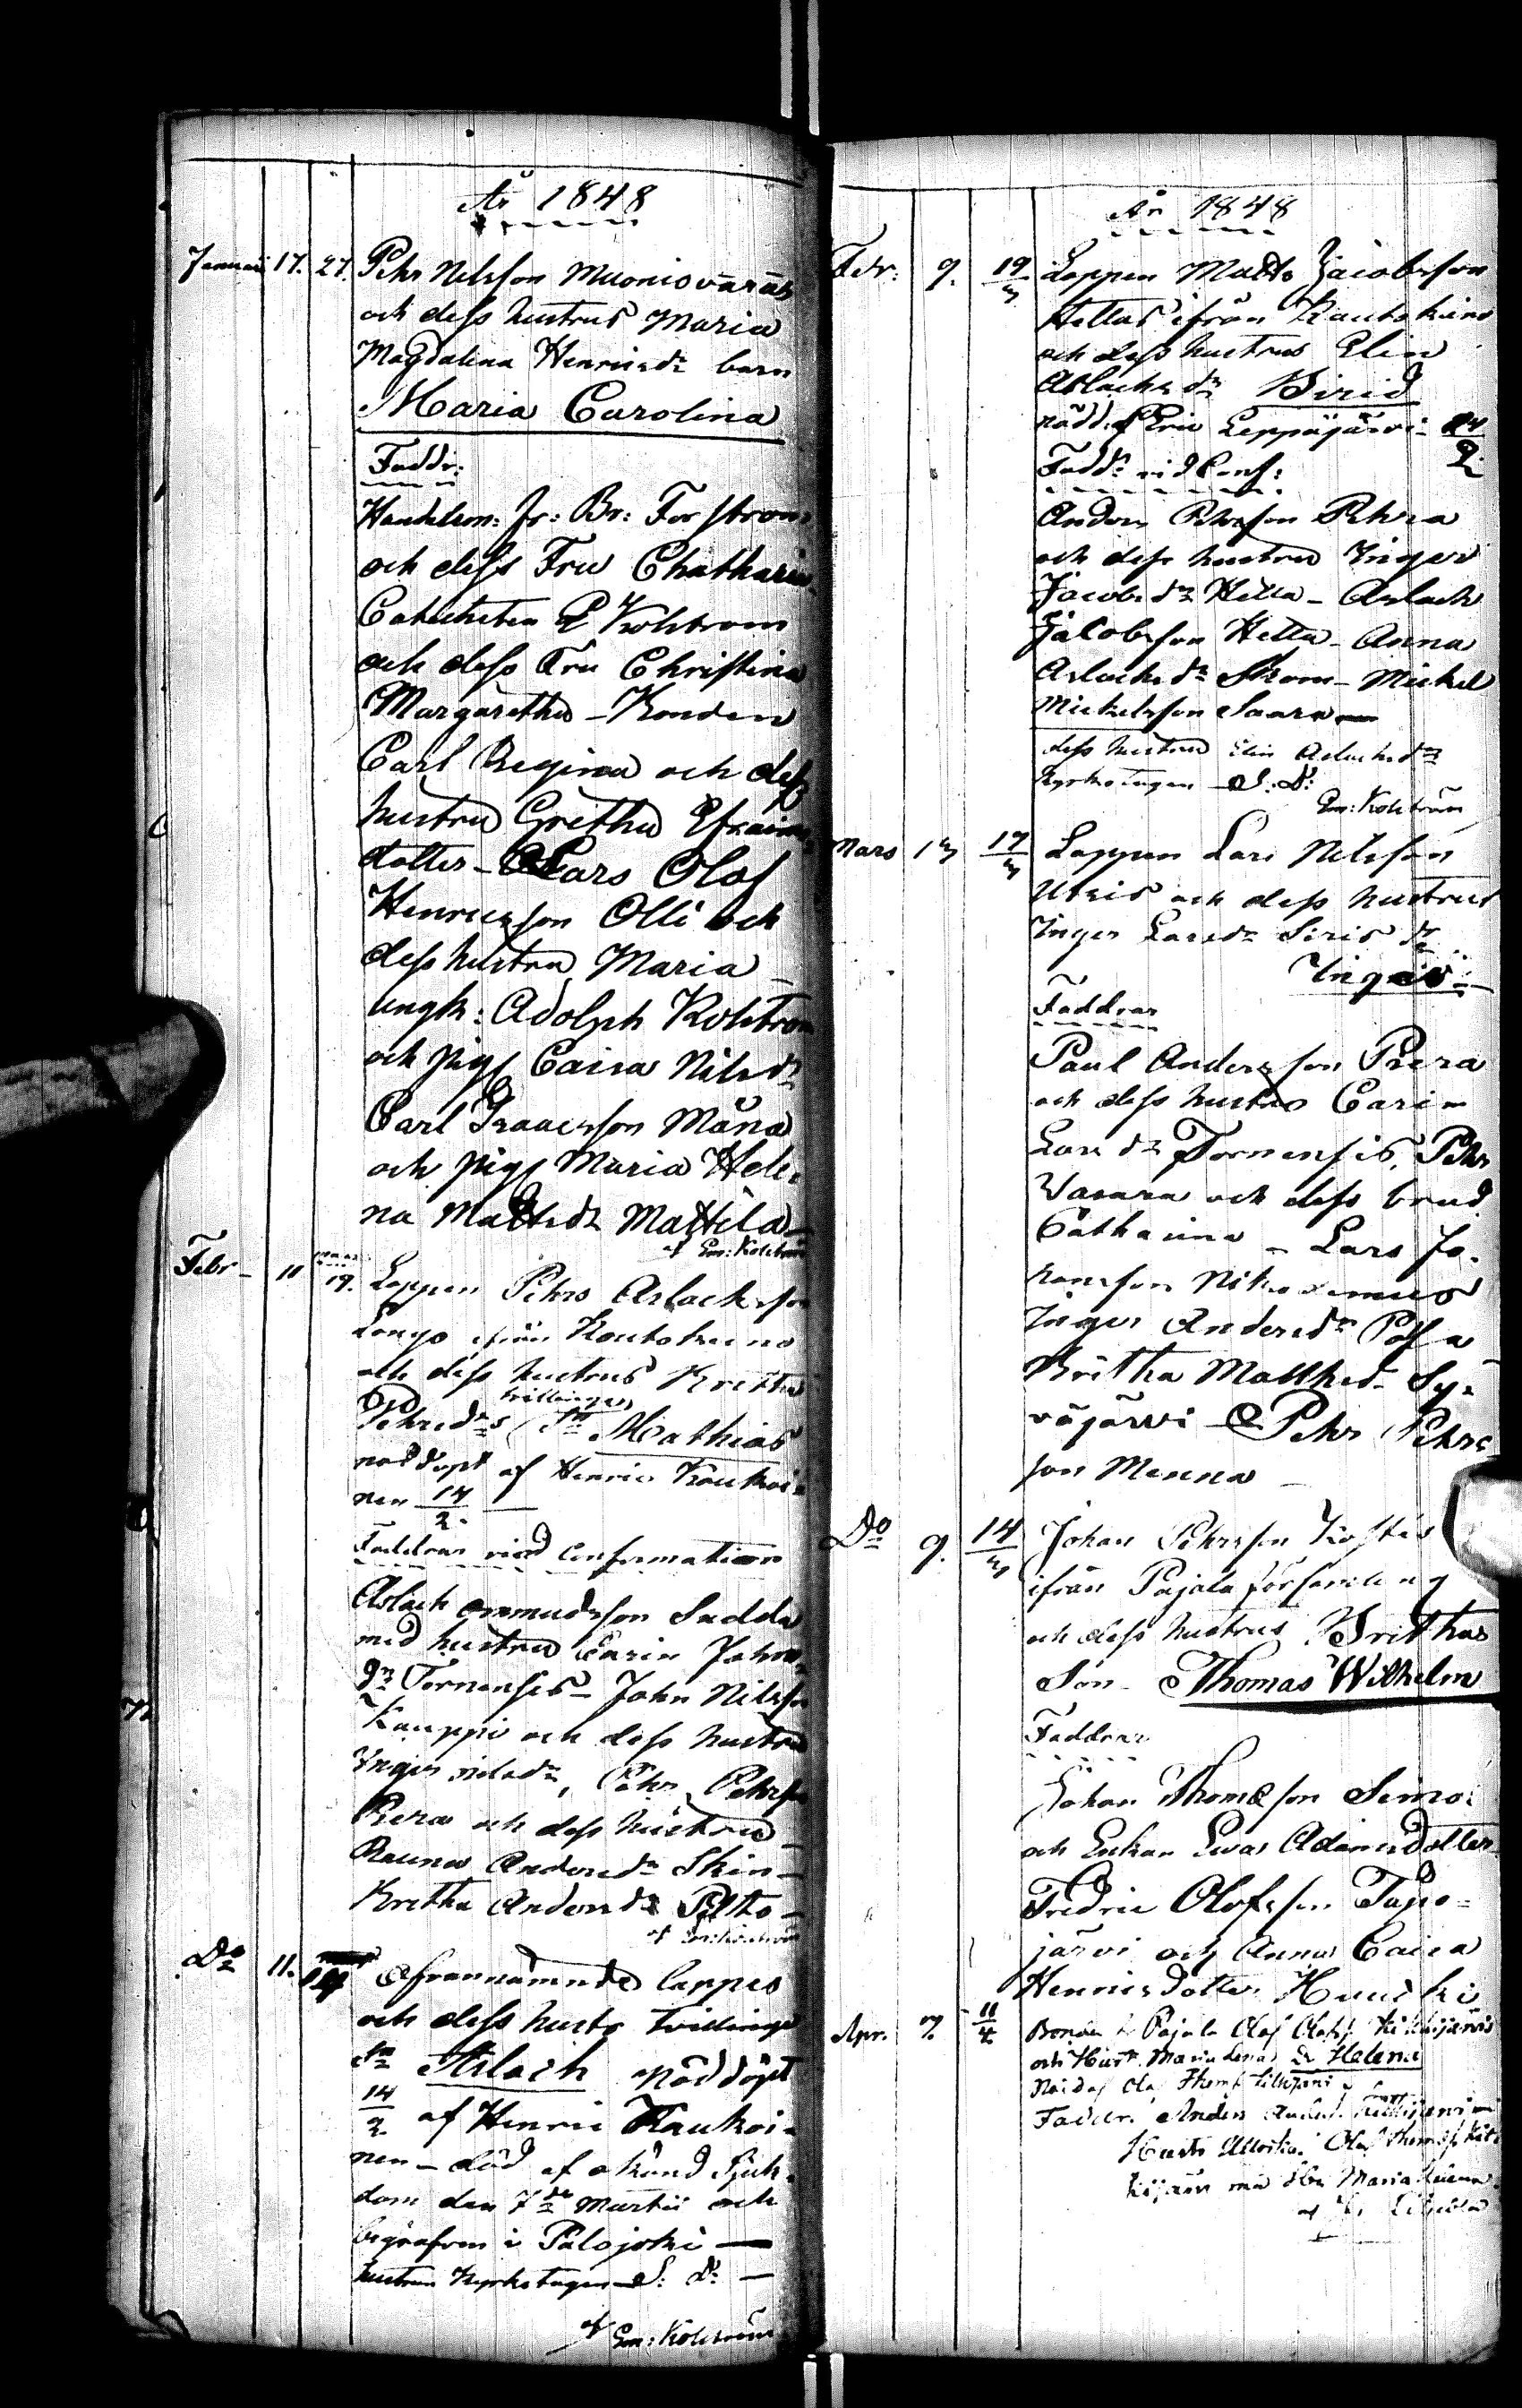 År 1848
Januari 17. 27. Pehr Nilsson Muoniovaara
och dess hustrus Maria
Magdalena Henricsdr barn
Maria Carolina
Faddr:
Handelsm: Jr: Br: Forsström
och dess Fru Chatharina
Catecheten E Kolström
och dess Fru Christina
Margaretha - Bonden
Carl Regina och dess
hustru Gretha Efraims
dotter - Lars Olof
Henricsson Olli och
dess hustru Maria
ungk: Adolph Kolström
och pig Caisa Nilsdr
Carl Isaacsson Mäna
och pig Maria Hele
na Mattsdr Mattila
af Em: Kolström
Febr - 11 19. Lappen Pehrs Aslacksson
Longo ifrån Koutokeino
och dess hustrus Kretha
Pehrsdrs trillinge Sn Mathias
nöddöpt af Henric Koukoi
nen 14/2.
Faddrar vid Confirmation
Aslack Ommudsson Sadda
med hustru Carin Johns
dr Tornensis - John Nilsson
Kauppi och dess hustru
Inger Nilsdr, Pehr Pehrsson
Rera och dess hustru
Rauna Andersdr Skin
Kretha Andersdr Pelto
af Em: Kolström
Do 11. Ofvannämnde lappes
och dess hustr trillinge
Sn Aslach nöddöpt
14/2 af Henric Kaukoi
nen - död af okänd sjuk
dom den 7de Martii och
begrafven i Palojoki
hustrun Kyrkotagen S: D:
af Em: Kolström
År 1848
Febr: 9. 19/3 Lappen Matts Jacobsson
Hettas ifrån Kautokeino
och dess hustrus Elin
Aslachsdr Birid
nödd. af Eric Leppäjärvi 24/2
Fadd: vid Conf:
Anders Pehrsson Pehra
och dess hustru Inger
Jacobsdr Hetta - Aslach
Jacobsson Hetta - Anna
Aslachsdr Skom - Mickel
Mickelsson Saara
dess hustru Elin Aslachsdr
Kyrkotagen S: D:
Em: Kolström
Mars 13 17/3 Lappen Lars Nilsson
Utsis och dess hustrus
Inger Larsdr Siris dr
Inga
Faddrar
Paul Andersson Peera
och dess hustru Carin
Larsdr Tornensis, Pehr
Vasara och dess brud
Catharina - Lars Jo
hansson Nikodemus
Inger Andersdr Possa
Britha Mathsd. Sy
väjärvi - Pehr Pehrs
son Menna
Do 9. 14/3 Johan Pehrsson Kostis
ifrån Pajala församling
och dess hustrus Brithas
Son - Thomas Wilhelm
Faddrar
Johan Thomsson Simo
och Enkan Eva Adamsdotter
Fredric Olofsson Tapo
järvi och Anna Caisa
Henricsdotter Huuski
Apr. 7. 11/4 Bonden fr Pajala Olof Olofss Kitkijärvi
och Hustr. Maria Lenas Dr Helena
Faddr. Anders